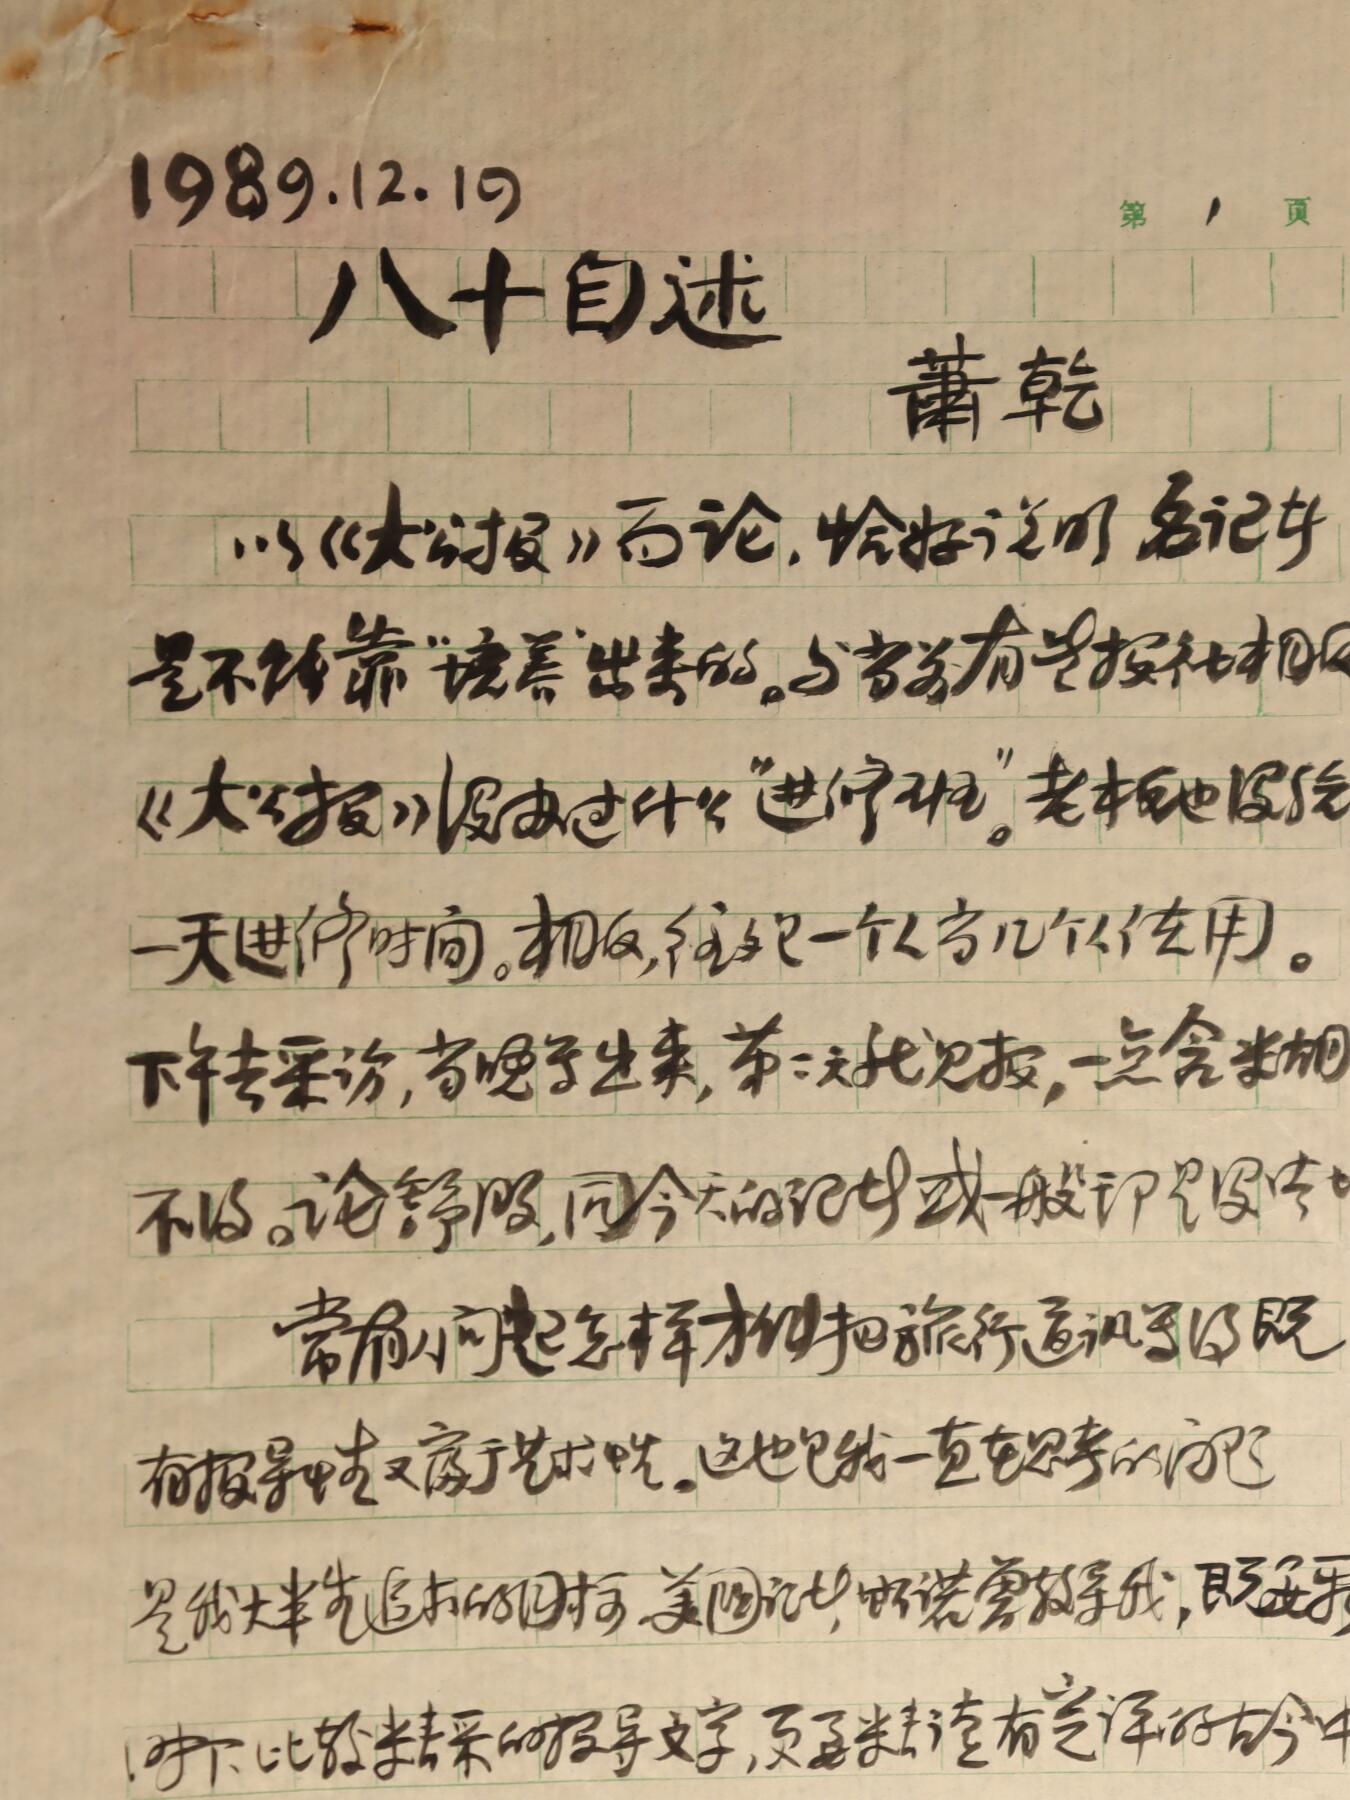 1989.12.19
第 1 页
八十自述
蕭乾
以《大公报》而论，恰好说明名记者
是不能靠“培养”出来的。与当前有些报社相反
《大公报》没办过什么“进修班”。老板也没给
一天进修时间。相反，往往把一个人当几个人使用。
下午去采访，当晚写出来，第二天就见报，一点含糊
不得。论舒服，同今天的记者或一般印象没法比
常有人问起怎样才能把旅行通讯写得既
有报导性又富于艺术性。这也是我一直在思考的问题
是我大半生追求的目标 美国记者斯诺曾教导我，既要研
时下比较精采的报导文字，更要精读有定评的古今中